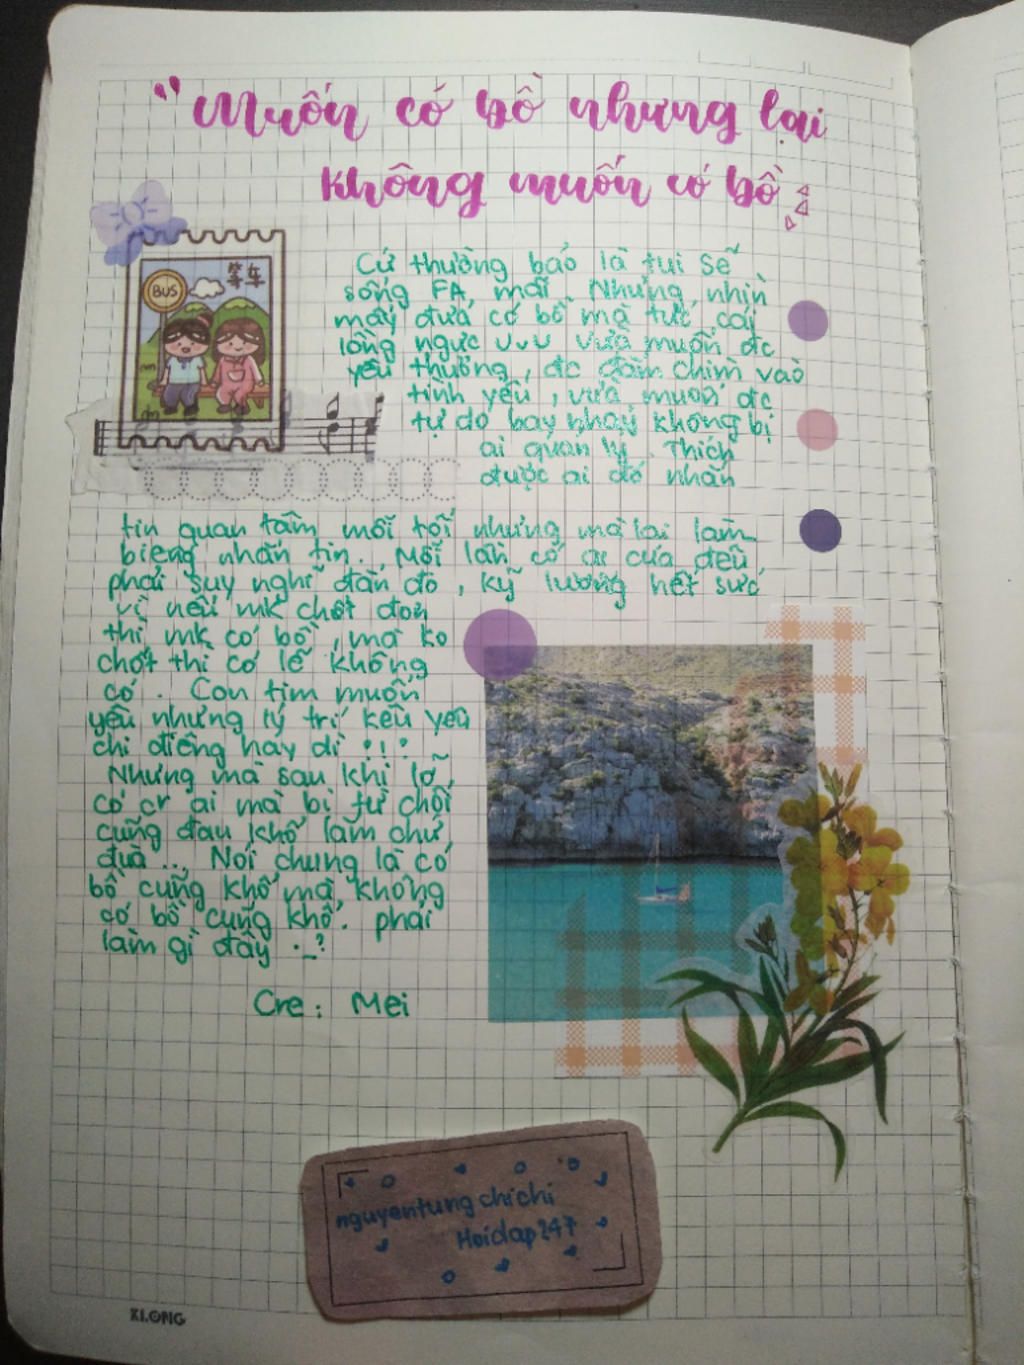 " Muốn có bồ nhưng lại
không muốn có bồ "
BUS
等车
Cứ thường bảo là tui sẽ
sống FA mãi. Nhưng nhìn
mấy đứa có bồ mà tức cái
lồng ngực UvU vừa muốn đc
yêu thương, đc đắm chìm vào
tình yêu, vừa muốn đc
tự do bay nhảy không bị
ai quản lý. Thích
được ai đó nhắn
tin quan tâm mỗi tối nhưng mà lại làm
biếng nhắn tin. Mỗi lần có ai cưa đều
phải suy nghĩ đắn đo, kỹ lưỡng hết sức
vì nếu mk chốt đơn
thì mk có bồ, mà ko
chốt thì có lẽ không
có. Con tim muốn
yêu nhưng lý trí kêu yêu
chi điêng hay dì ?!?
Nhưng mà sau khi lỡ
có cr ai mà bị từ chối
cũng đau khổ lắm chứ
đùa... Nói chung là có
bồ cũng khổ mà không
có bồ cũng khổ. phải
làm gì đây ._?
Cre: Mei
nguyentungchichi
Hoidap247
KLONG